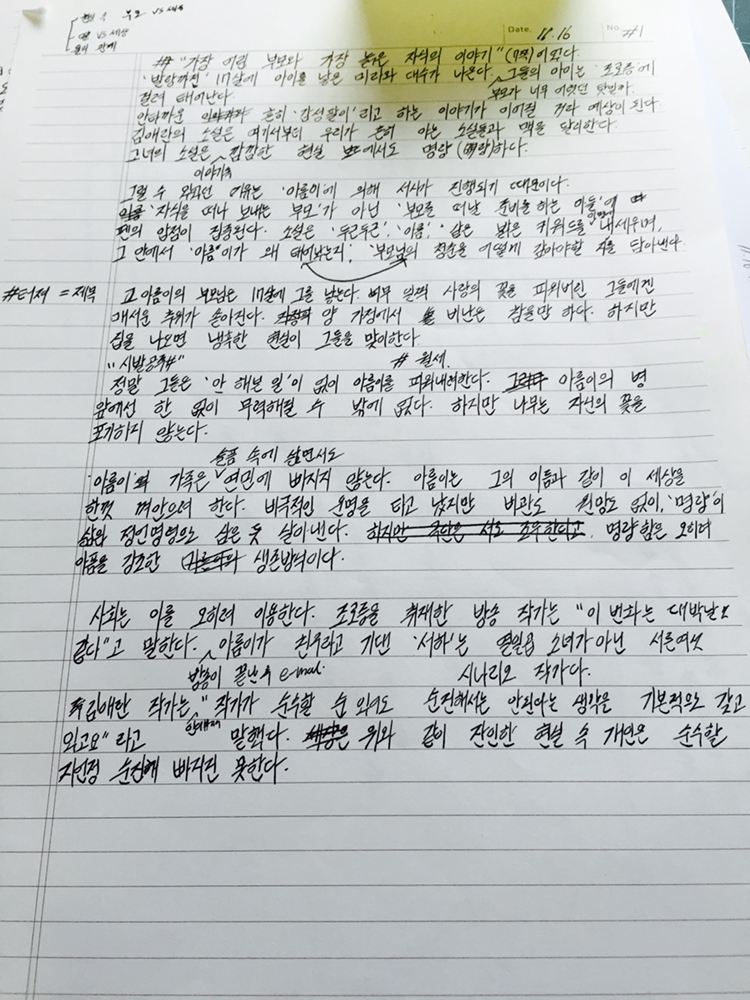 부모 vs 세상
vs 세상
Date. 18.16 No. #1
## "가장 어린 부모와 가장 늙은 자식의 이야기" (7쪽)
'발랑까진' 17살에 아이를 낳은 미라와 대수가 나온다. 그들의 아이는 '조로증'에
걸려 태어난다. 부모가 너무 어렸던 탓일까.
안타까운 흔히 '감성팔이'라고 하는 이야기가 이어질 거라 예상이 된다.
김애란의 소설은 여기서부터 우리가 흔히 아는 소설들과 맥을 달리한다.
그녀의 소설은 깜깜한 현실 에서도 명랑(明朗)하다.
이야기
그럴 수 있는 이유는 '아름이'에 의해 서사가 진행되기 때문이다.
'자식을 떠나 보내는 부모'가 아닌 '부모를 떠날 준비를 하는 아들'에
펜의 압점이 집중된다. 소설은 '두근두근', '여름', '삶'은 밝은 키워드를 내세우며,
그 안에서 '아름'이가 왜 태어났는지, '부모님의 청춘을 어떻게 갚아야할 지를 담아낸다.
#터져 = 제목 고 아름이의 부모님은 17살에 그를 낳는다. 너무 일찍 사랑의 꽃을 피워버린 그들에겐
매서운 추위가 쏟아진다. 양 가정에서 비난은 참을만 하다. 하지만
집을 나오면 냉혹한 현실이 그들을 맞이한다.
"시발공주#" # 월세.
정말 그들은 '안 해본 일'이 없이 아름이를 피워내려한다. 아름이의 병
앞에선 한 없이 무력해질 수 밖에 없다. 하지만 나무는 자신의 꽃을
포기하지 않는다.
슬픔 속에 살면서도
'아름이'의 가족은 연민에 빠지지 않는다. 아름이는 그의 이름과 같이 이 세상을
한껏 껴안으려 한다. 비극적인 운명을 타고 났지만 비관도 원망도 없이, '명랑'이
삶의 정언명령으로 삼은 듯 살아낸다. 명랑함은 오히려
아픔을 강조한 생존방식이다.
사회는 이를 오히려 이용한다. 조로증을 취재한 방송 작가는 "이 번화는 대박날 것
같다"고 말한다. 아름이가 친구라고 기댄 '서하'는 열일곱 소녀가 아닌 서른여섯
방송이 끝난 후 e-mail. 시나리오 작가다.
김애란 작가는 "작가가 순수할 순 있어도 순진해서는 안된다는 생각을 기본적으로 갖고
있고요"라고 말했다. 위와 같이 잔인한 현실 속 개인은 순수할
지언정 순진에 빠지진 못한다.